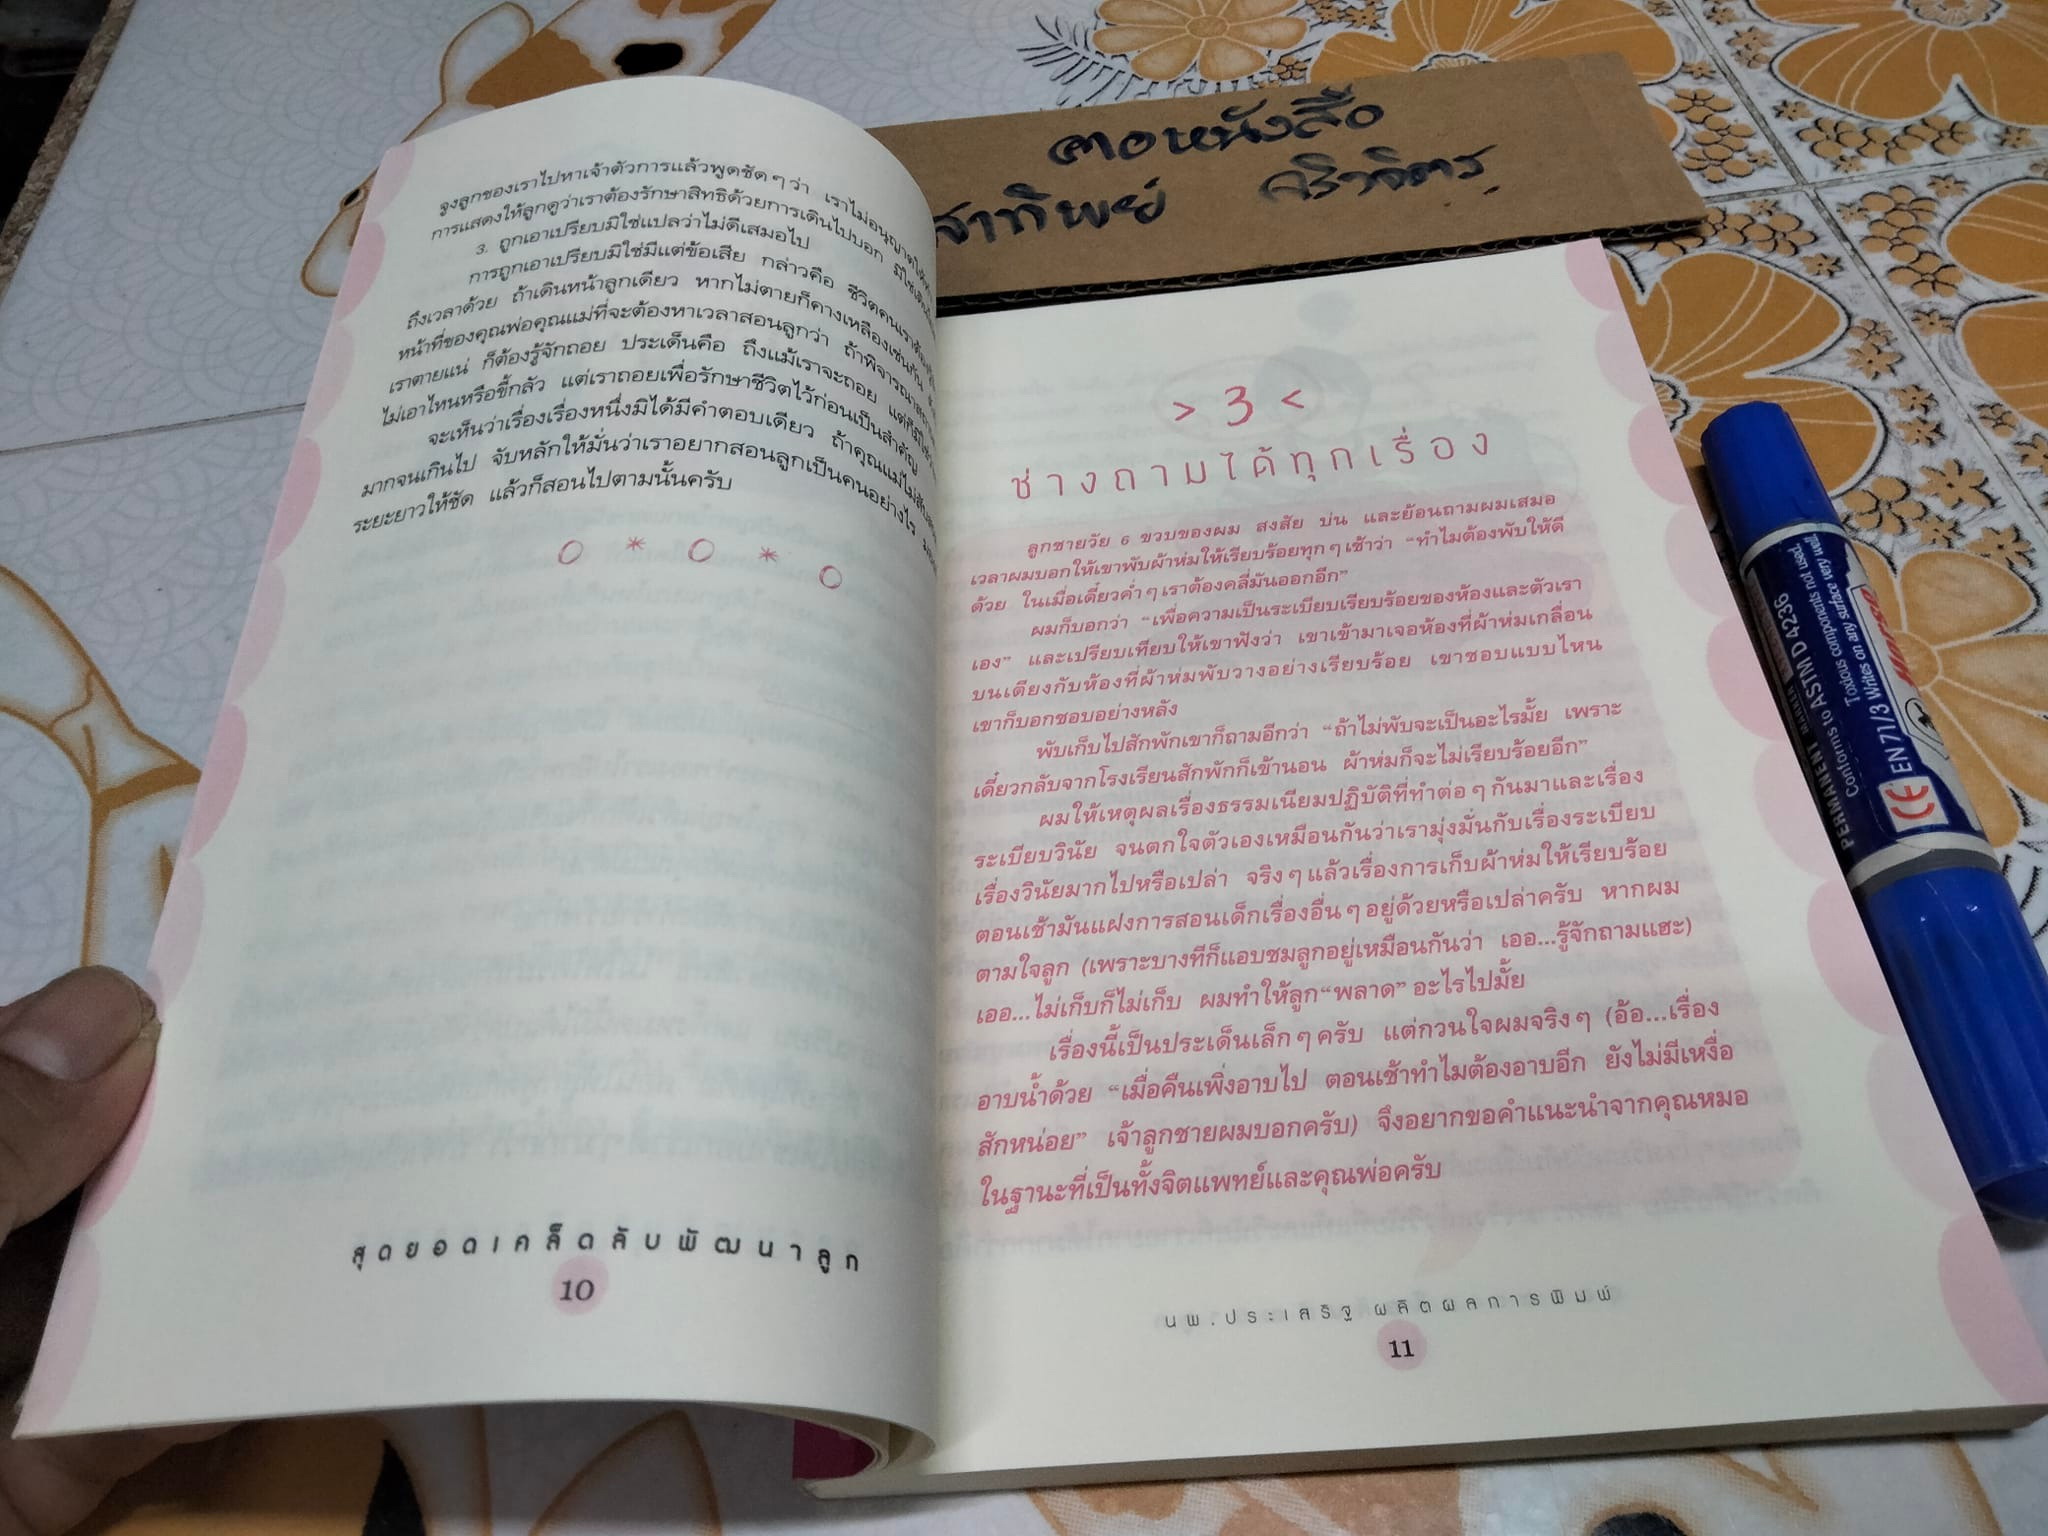 คอหนังสือ
สาทิพย์
จูงลูกของเราไปหาเจ้าตัวการแล้วพูดชัดๆว่า เราไม่อนุญาตให้
การแสดงให้ลูกดูว่าเราต้องรักษาสิทธิด้วยการเดินไปบอก มิใช่
3. ถูกเอาเปรียบมิใช่แปลว่าไม่ดีเสมอไป
การถูกเอาเปรียบมิใช่มีแต่ข้อเสีย กล่าวคือ ชีวิตคนเรา
ถึงเวลาด้วย ถ้าเดินหน้าลูกเดียว หากไม่ตายก็คางเหลืองเช่นกัน
หน้าที่ของคุณพ่อคุณแม่ที่จะต้องหาเวลาสอนลูกว่า ถ้าพิจารณา
เราตายแน่ ก็ต้องรู้จักถอย ประเด็นคือ ถึงแม้เราจะถอย แต่ก็มิใช่
ไม่เอาไหนหรือขี้กลัว แต่เราถอยเพื่อรักษาชีวิตไว้ก่อนเป็นสำคัญ
จะเห็นว่าเรื่องเรื่องหนึ่งมิได้มีคำตอบเดียว ถ้าคุณแม่ไม่สับสน
มากจนเกินไป จับหลักให้มั่นว่าเราอยากสอนลูกเป็นคนอย่างไร
ระยะยาวให้ชัด แล้วก็สอนไปตามนั้นครับ
สุดยอดเคล็ดลับพัฒนาลูก
10
> 3 <
ช่างถามได้ทุกเรื่อง
ลูกชายวัย 6 ขวบของผม สงสัย บ่น และย้อนถามผมเสมอ
เวลาผมบอกให้เขาพับผ้าห่มให้เรียบร้อยทุกๆเช้าว่า “ทำไมต้องพับให้ดี
ด้วย ในเมื่อเดี๋ยวค่ำๆเราต้องคลี่มันออกอีก”
ผมก็บอกว่า “เพื่อความเป็นระเบียบเรียบร้อยของห้องและตัวเรา
เอง” และเปรียบเทียบให้เขาฟังว่า เขาเข้ามาเจอห้องที่ผ้าห่มเกลื่อน
บนเตียงกับห้องที่ผ้าห่มพับวางอย่างเรียบร้อย เขาชอบแบบไหน
เขาก็บอกชอบอย่างหลัง
พับเก็บไปสักพักเขาก็ถามอีกว่า “ถ้าไม่พับจะเป็นอะไรมั้ย เพราะ
เดี๋ยวกลับจากโรงเรียนสักพักก็เข้านอน ผ้าห่มก็จะไม่เรียบร้อยอีก”
ผมให้เหตุผลเรื่องธรรมเนียมปฏิบัติที่ทำต่อๆกันมาและเรื่อง
ระเบียบวินัย จนตกใจตัวเองเหมือนกันว่าเรามุ่งมั่นกับเรื่องระเบียบ
เรื่องวินัยมากไปหรือเปล่า จริงๆแล้วเรื่องการเก็บผ้าห่มให้เรียบร้อย
ตอนเช้ามันแฝงการสอนเด็กเรื่องอื่นๆอยู่ด้วยหรือเปล่าครับ หากผม
ตามใจลูก (เพราะบางทีก็แอบชมลูกอยู่เหมือนกันว่า เออ...รู้จักถามแฮะ)
เออ...ไม่เก็บก็ไม่เก็บ ผมทำให้ลูก“พลาด”อะไรไปมั้ย
เรื่องนี้เป็นประเด็นเล็กๆครับ แต่กวนใจผมจริงๆ (อ้อ...เรื่อง
อาบน้ำด้วย “เมื่อคืนเพิ่งอาบไป ตอนเช้าทำไมต้องอาบอีก ยังไม่มีเหงื่อ
สักหน่อย” เจ้าลูกชายผมบอกครับ) จึงอยากขอคำแนะนำจากคุณหมอ
ในฐานะที่เป็นทั้งจิตแพทย์และคุณพ่อครับ
นพ.ประเสริฐ ผลิตผลการพิมพ์
11
HORSE
PERMANENT MARKER
Conforms to ASTM D 4236
Toxious components not used.
Writes on any surface very well.
CE EN 71/3